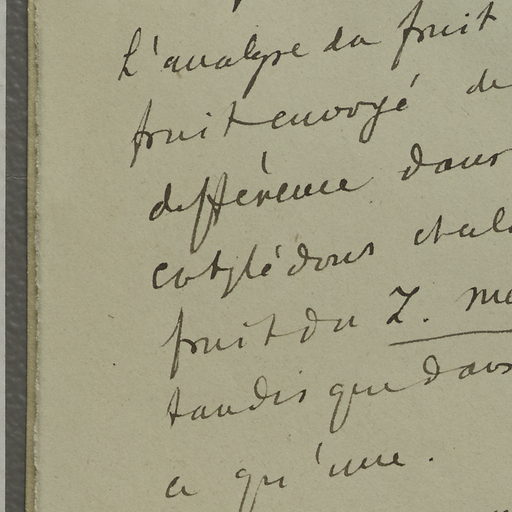 L'analyse du fruit
fruit envoyé de
différence dans
cotylédons etal
fruit du Z. me
tandis que dans
a qu'une.